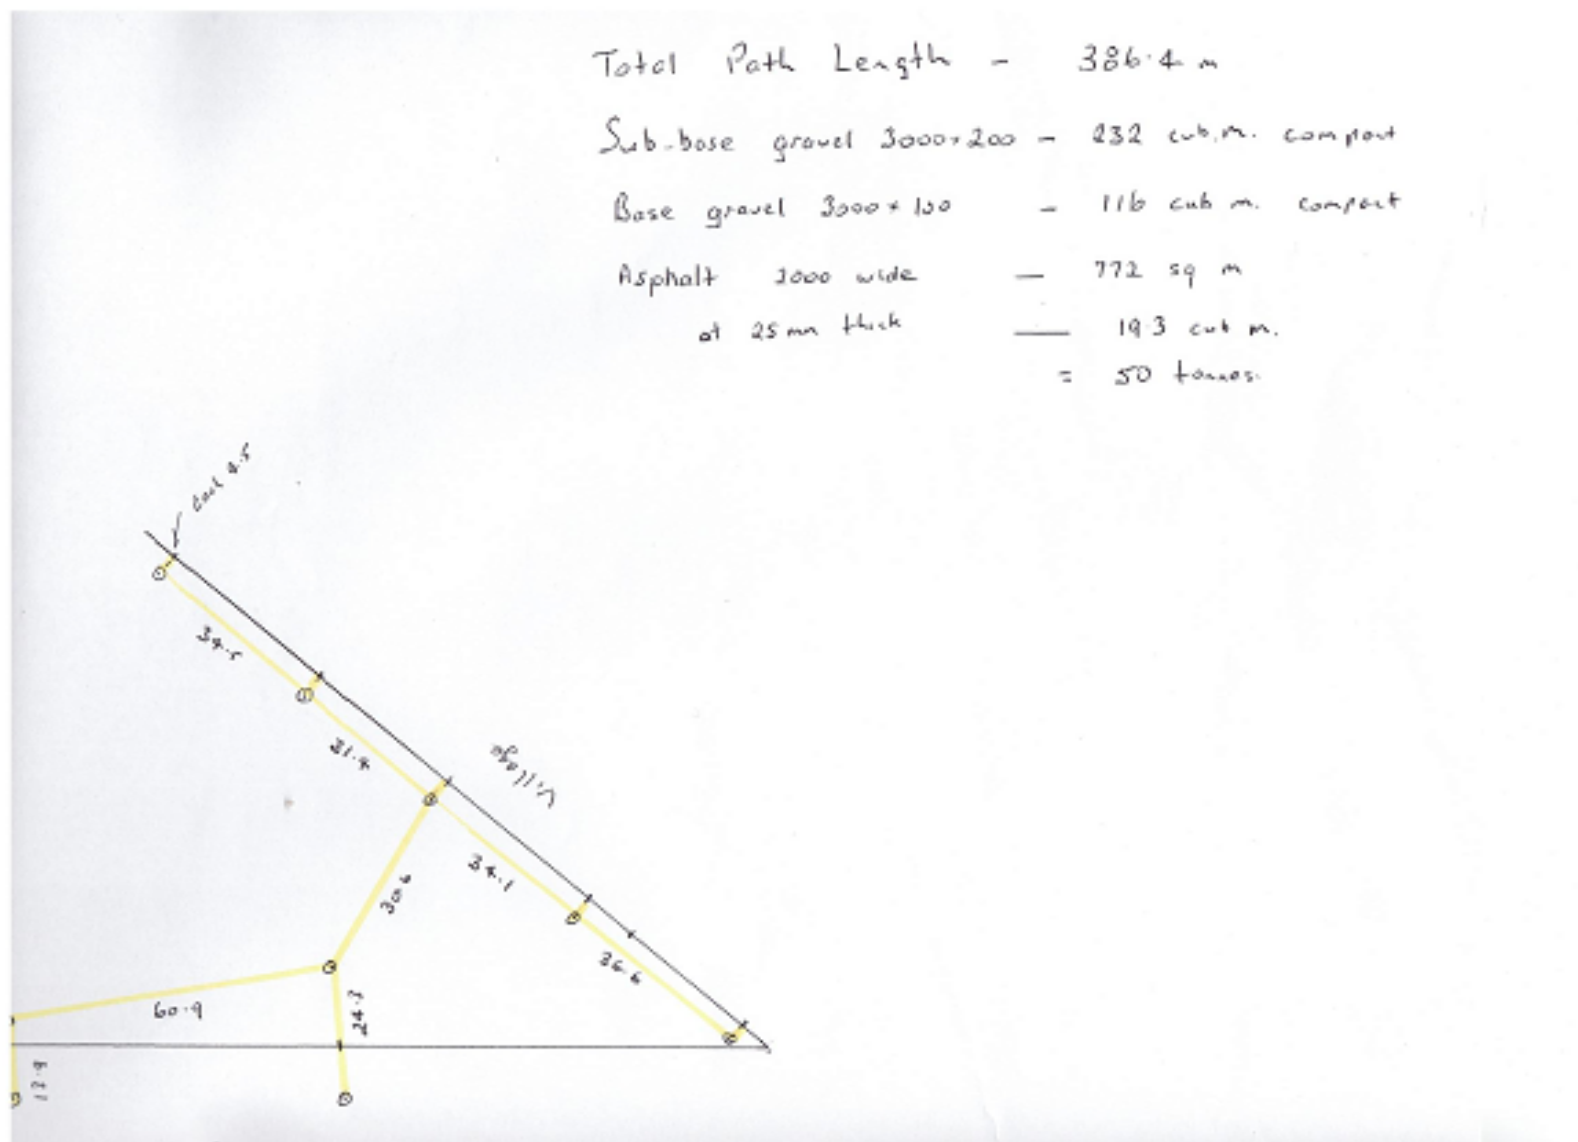 Total Path Length - 386.4 m
Sub-base gravel 3000×200 - 232 cub.m. compact
Base gravel 3000×100 - 116 cub m. compact
Asphalt 2000 wide — 772 sq m
at 25mm thick — 19.3 cub m.
= 50 tonnes.
each 4.5
34.5
31.4
Village
34.1
30.6
36.6
60.9
24.3